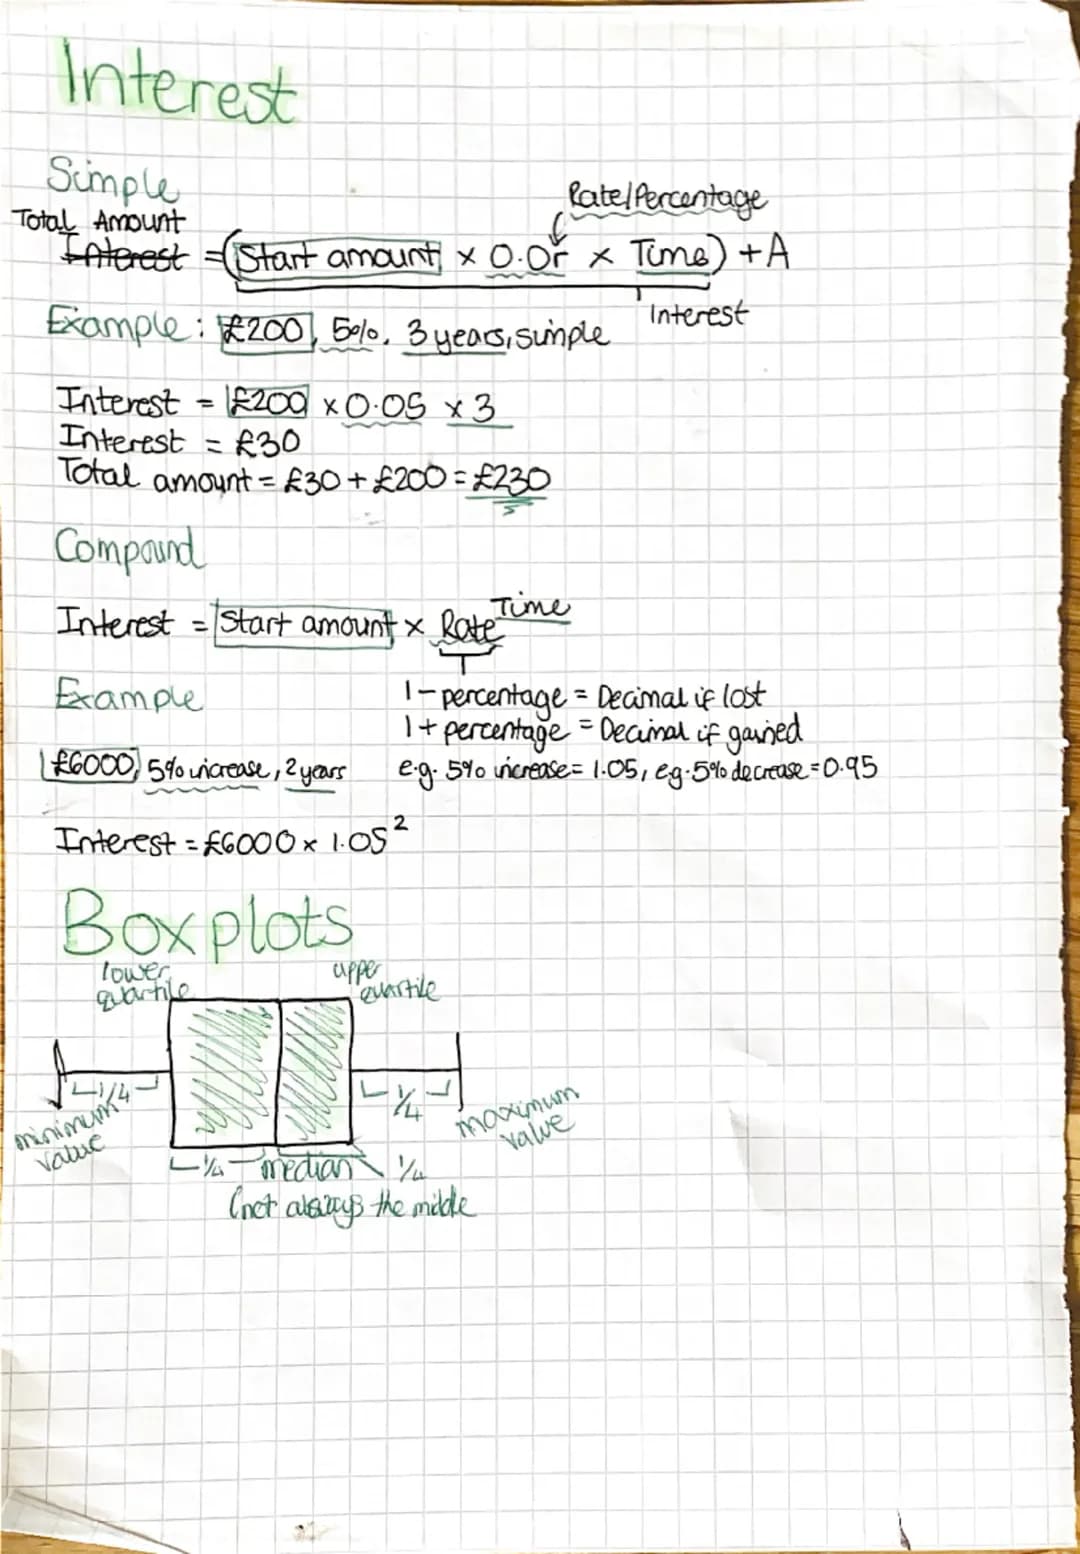 Interest
Simple
Rate/Percentage
Total Amount
Interest = (Start amount × 0.0r × Time) + A
Interest
Example: £200, 5%, 3 years, simple
Interest = £200 × 0.05 × 3
Interest = £30
Total amount = £30 + £200 = £230
Compound
Interest = Start amount × Rate^Time
Example
1 - percentage = Decimal if lost
1 + percentage = Decimal if gained
£6000, 5% increase, 2 years
e.g. 5% increase = 1.05, e.g. 5% decrease = 0.95
Interest = £6000 × 1.05²
Box plots
lower quartile
upper quartile
1/4
1/4
minimum value
maximum value
1/4 median 1/4
(not always the middle